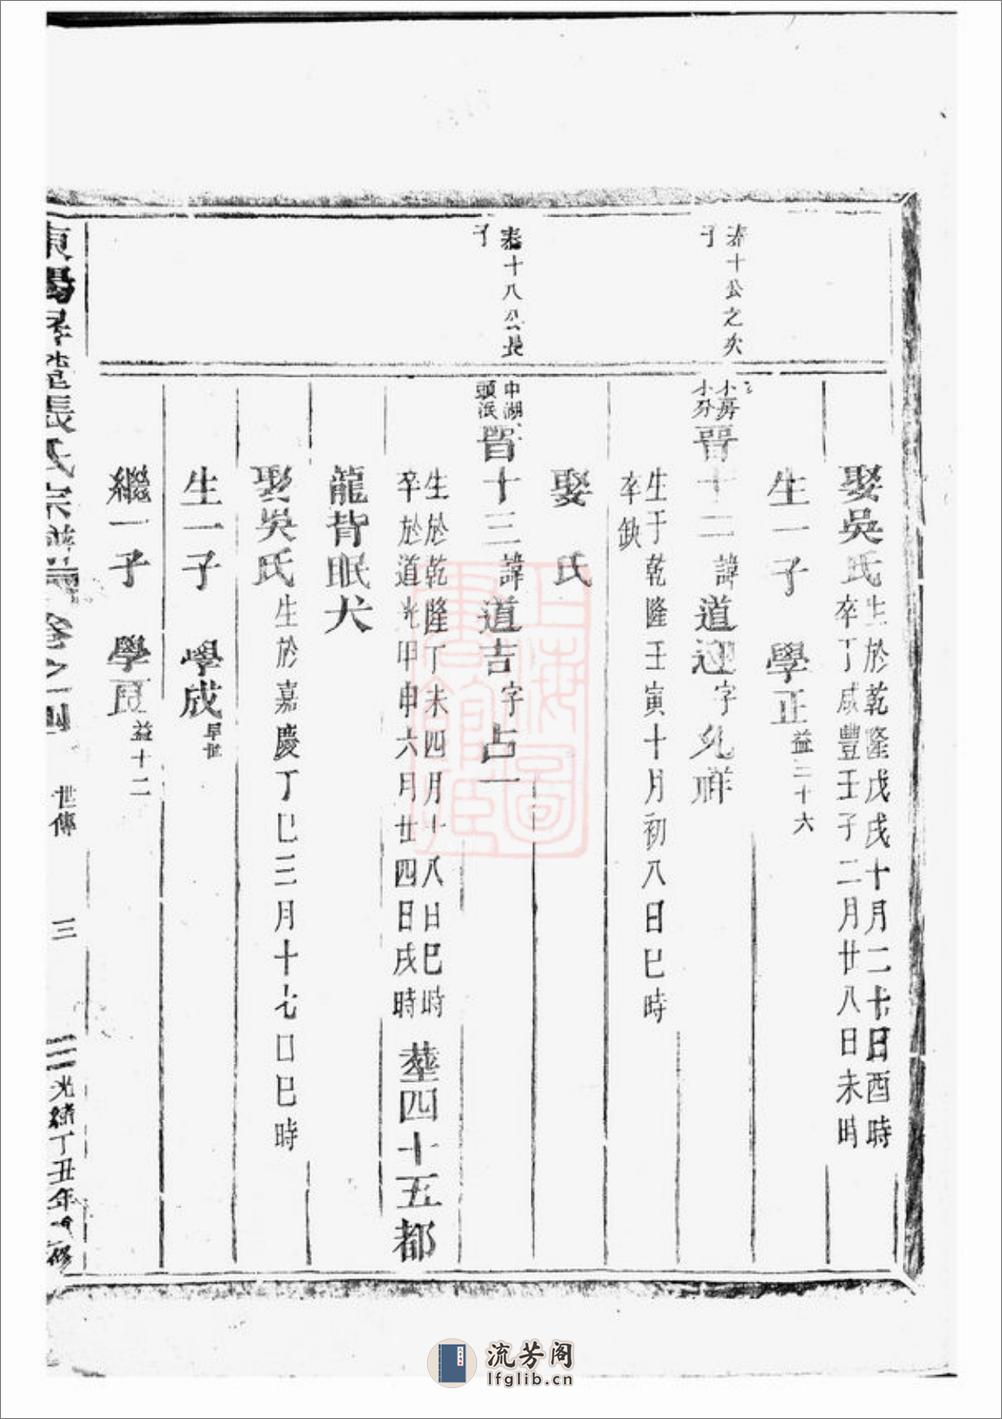 娶吳氏生於乾隆戊戌十月二十日酉時
卒丁咸豐壬子二月廿八日未時
生一子 學正益二十六
泰十公之次子
小房小分
晋十二諱道迎字允祥
生于乾隆壬寅十月初八日巳時
卒缺
娶 氏
泰十八公長子
中湖頭派
晋十三諱道吉字占一
生於乾隆丁未四月十八日巳時
卒於道光甲申六月廿四日戌時
塟四十五都
龍背眠犬
娶吳氏生於嘉慶丁巳三月十七日巳時
生一子 學成早世
繼一子 學良益十二
東陽 張氏宗譜 卷之十四 世傳 三 光緒丁丑年 修
上海圖書館藏
流芳阁
lfglib.cn